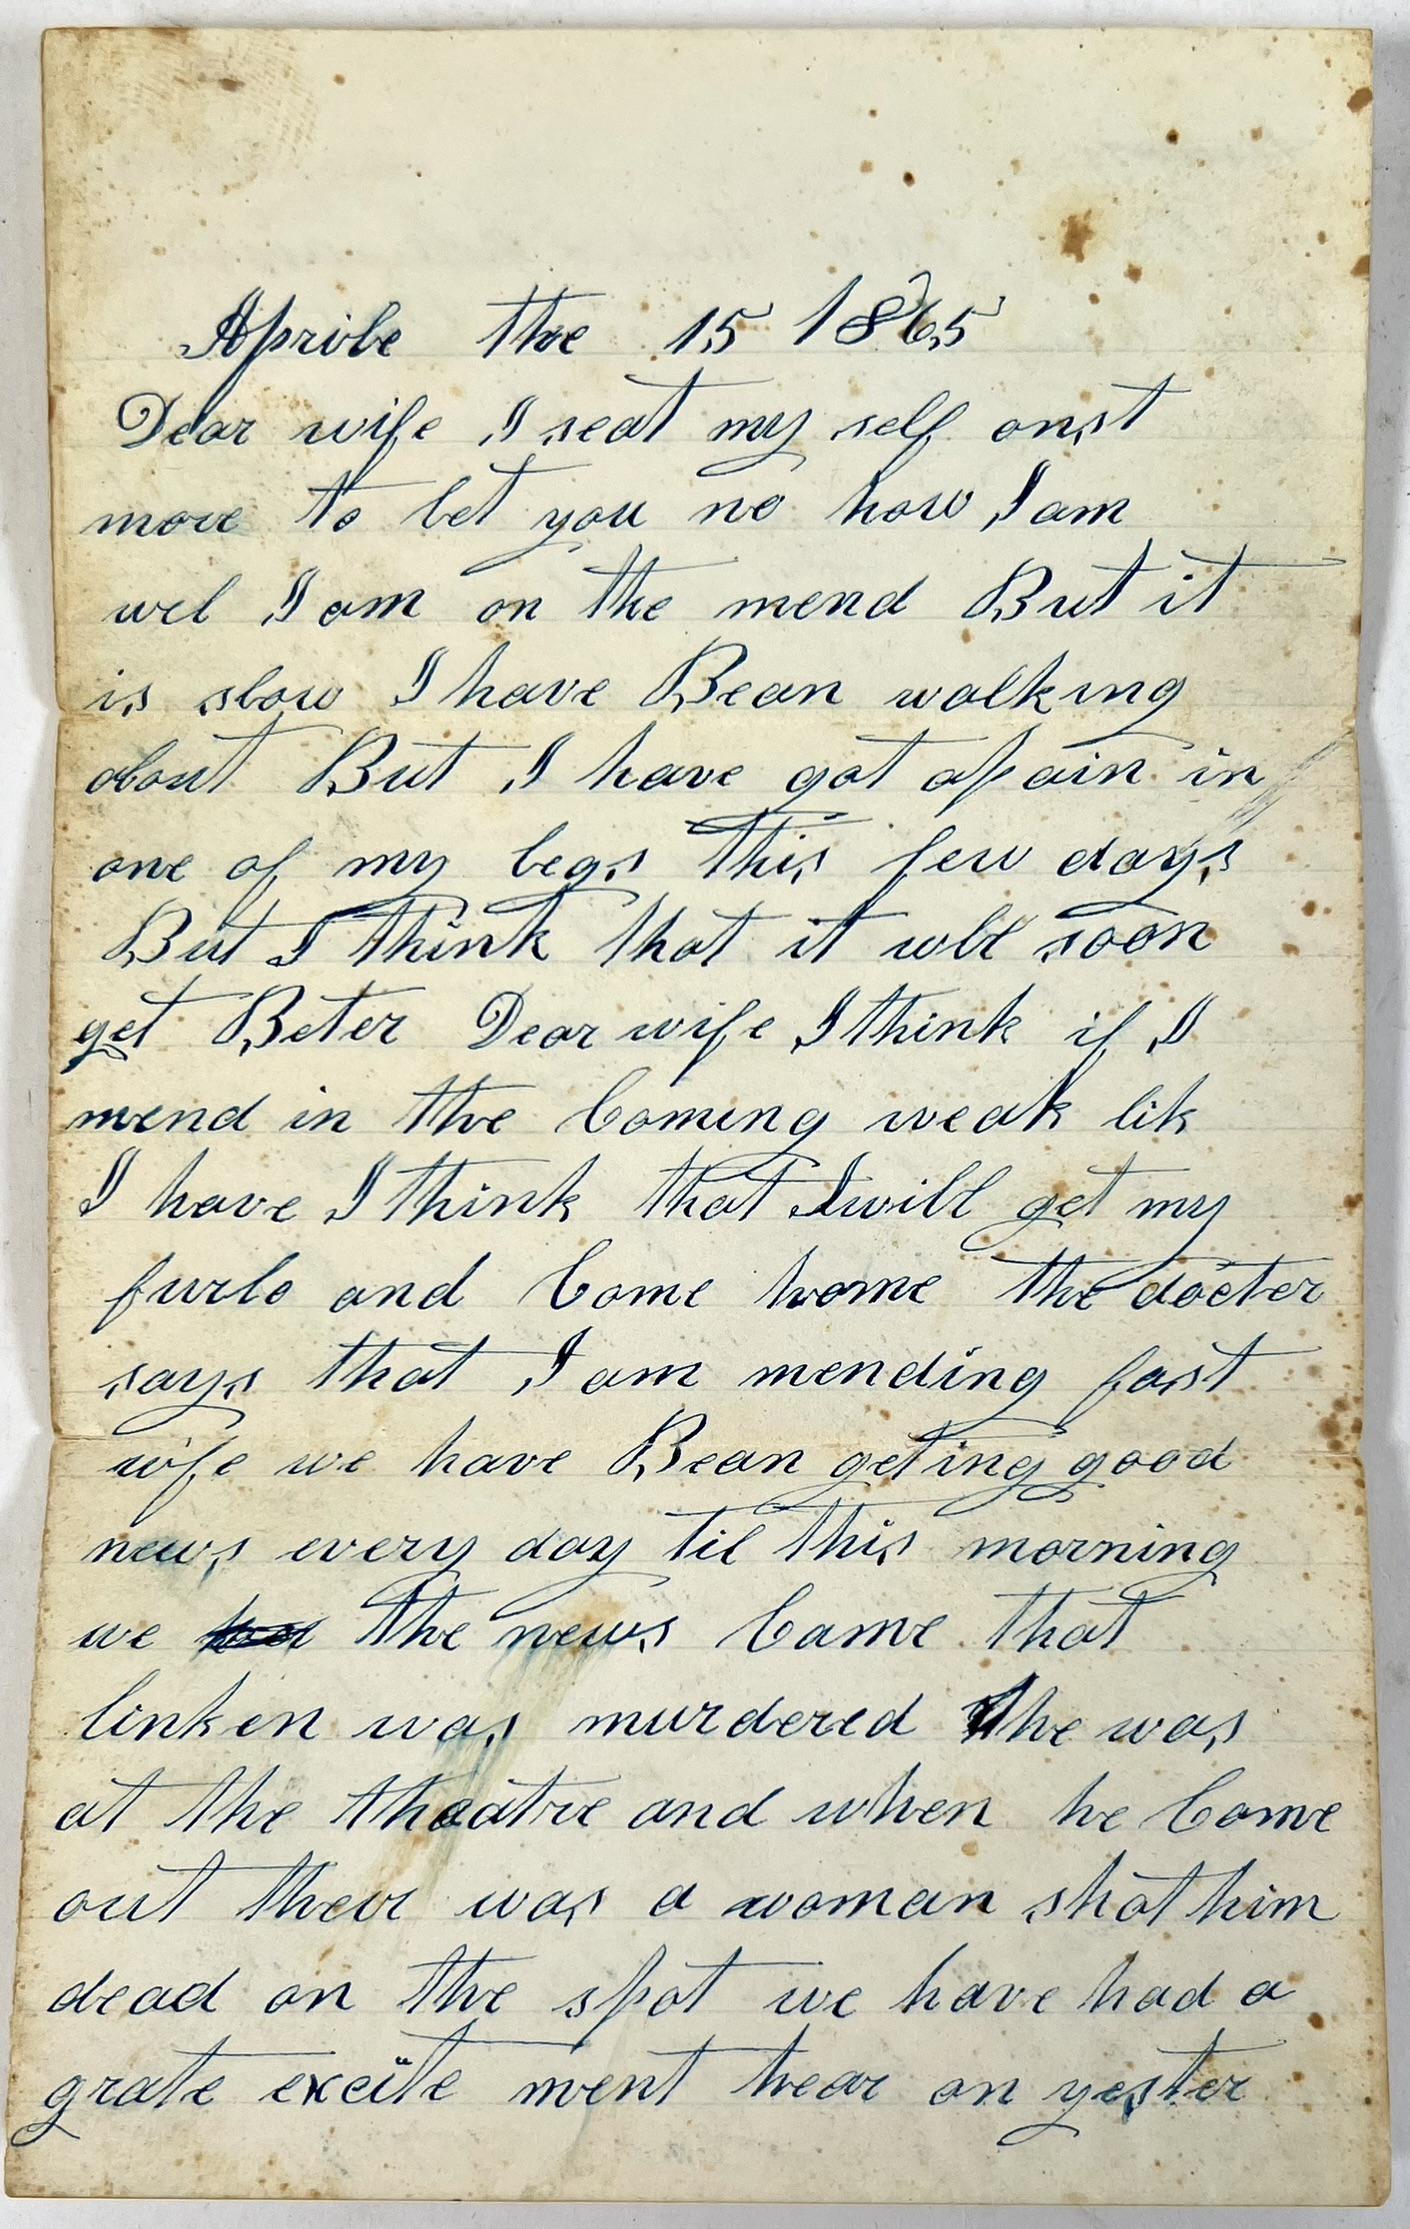 Aprile the 15 1865
Dear wife I seat my self onst
more to let you no how I am
wel I am on the mend But it
is slow I have Bean walking
about But I have got apain in
one of my legs this few days
But I think that it will soon
get Beter Dear wife I think if I
mend in the Coming weak lik
I have I think that I will get my
furlo and Come home the docter
says that I am mending fast
wife we have Bean geting good
news every day til this morning
we the news Came that
linken was murdered he was
at the theatre and when he Come
out their was a woman shot him
dead on the spot we have had a
grate excite ment hear on yester